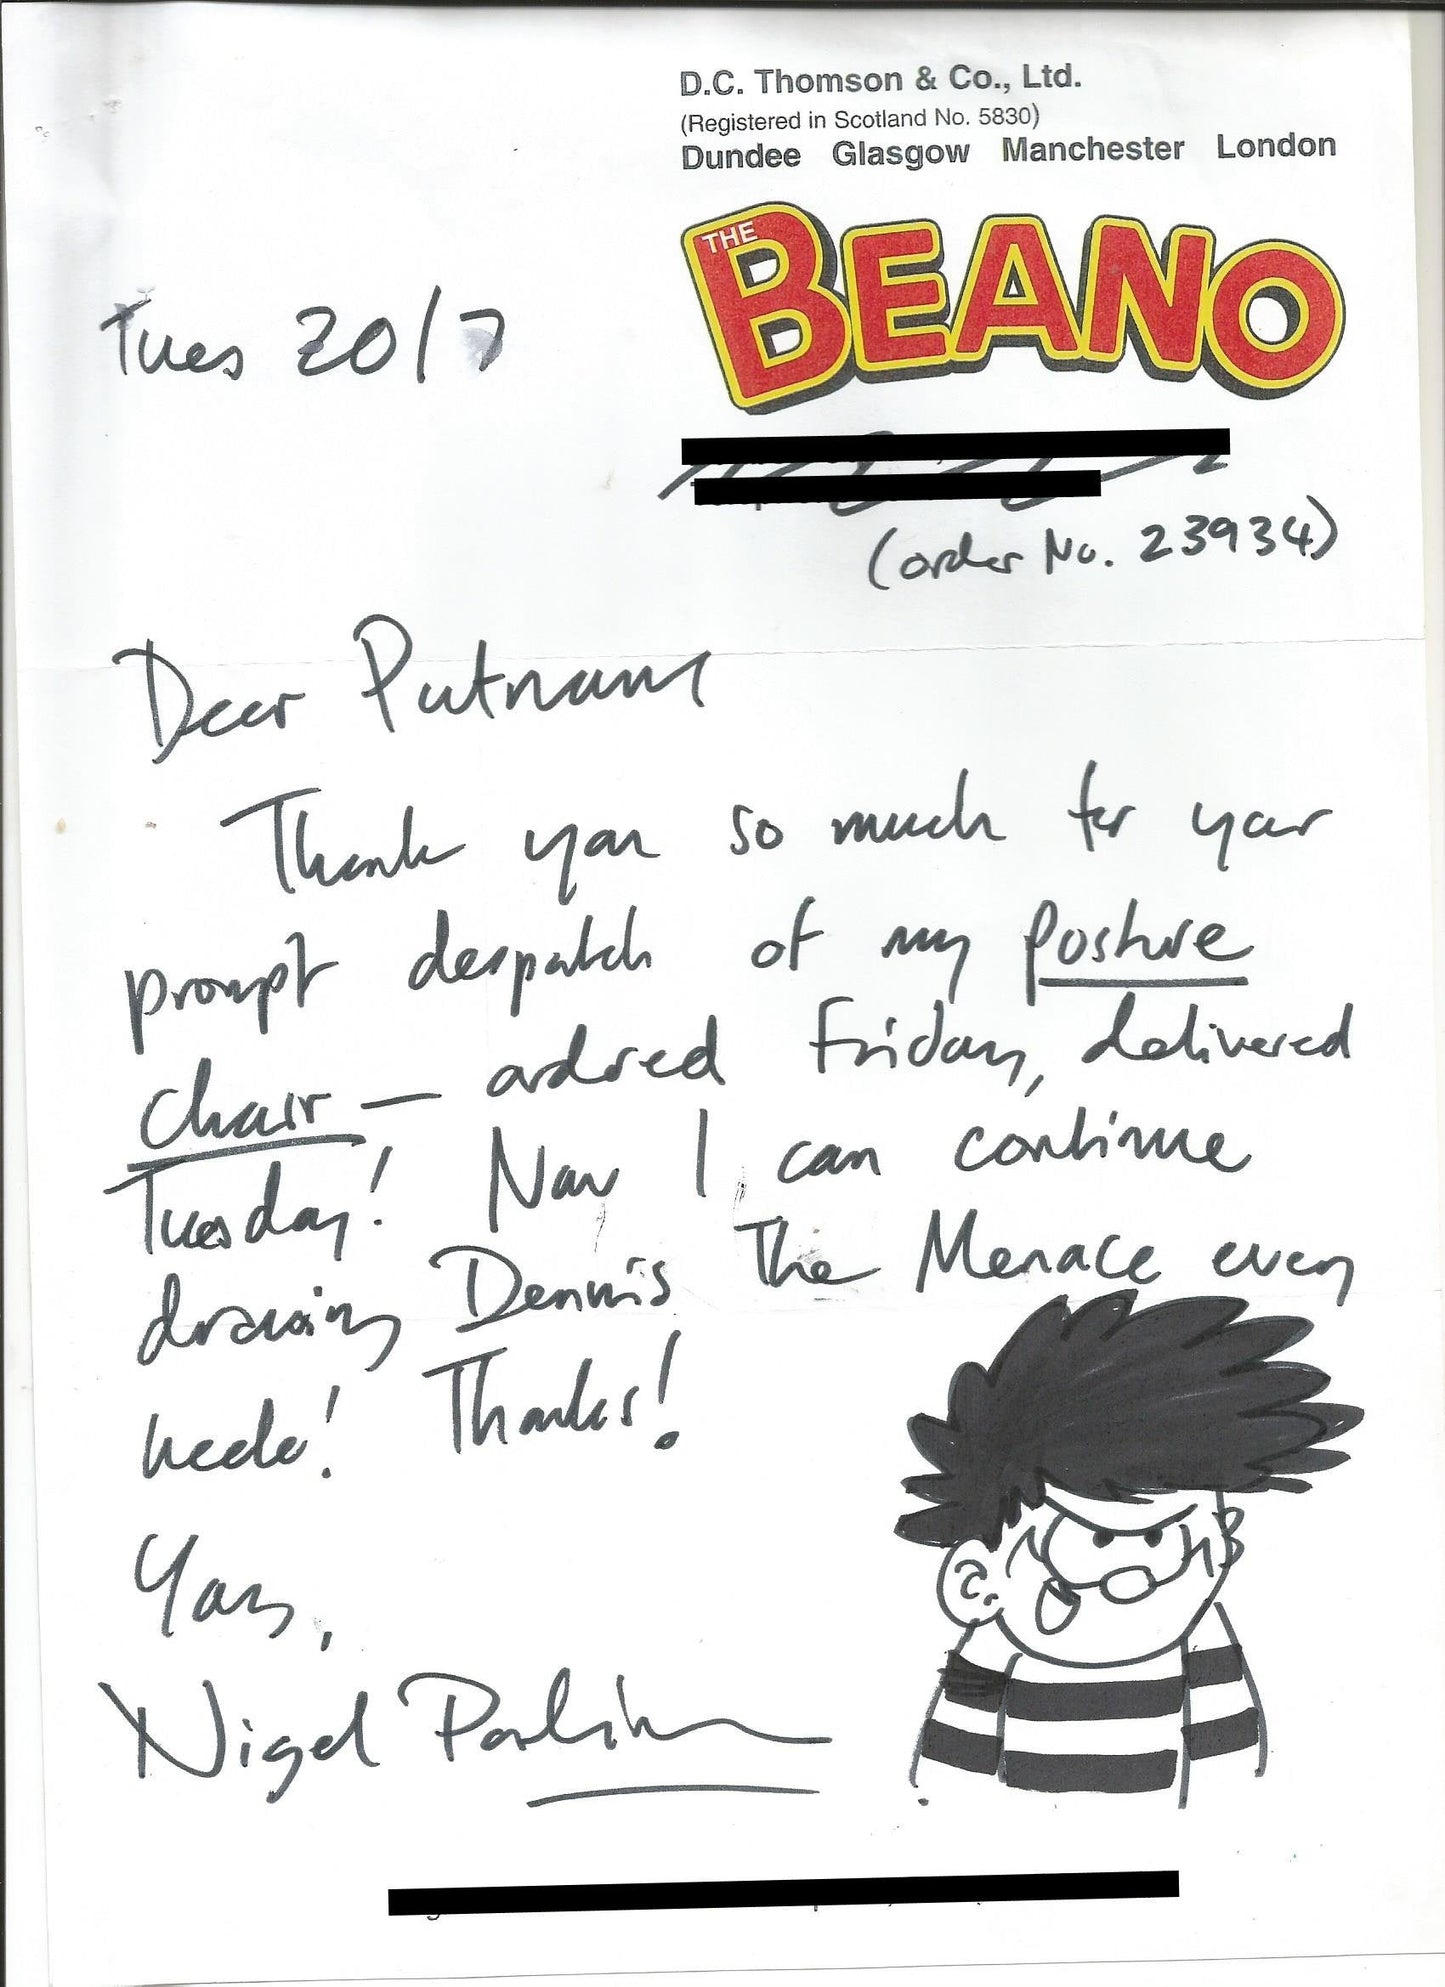 D.C. Thomson & Co., Ltd.
(Registered in Scotland No. 5830)
Dundee Glasgow Manchester London
THE BEANO
Tues 20/7
(order No. 23934)
Dear Putnams
Thank you so much for your
prompt despatch of my posture
chair – ordered Friday, delivered
Tuesday! Now I can continue
drawing Dennis The Menace every
week! Thanks!
Yours,
Nigel Parkinson